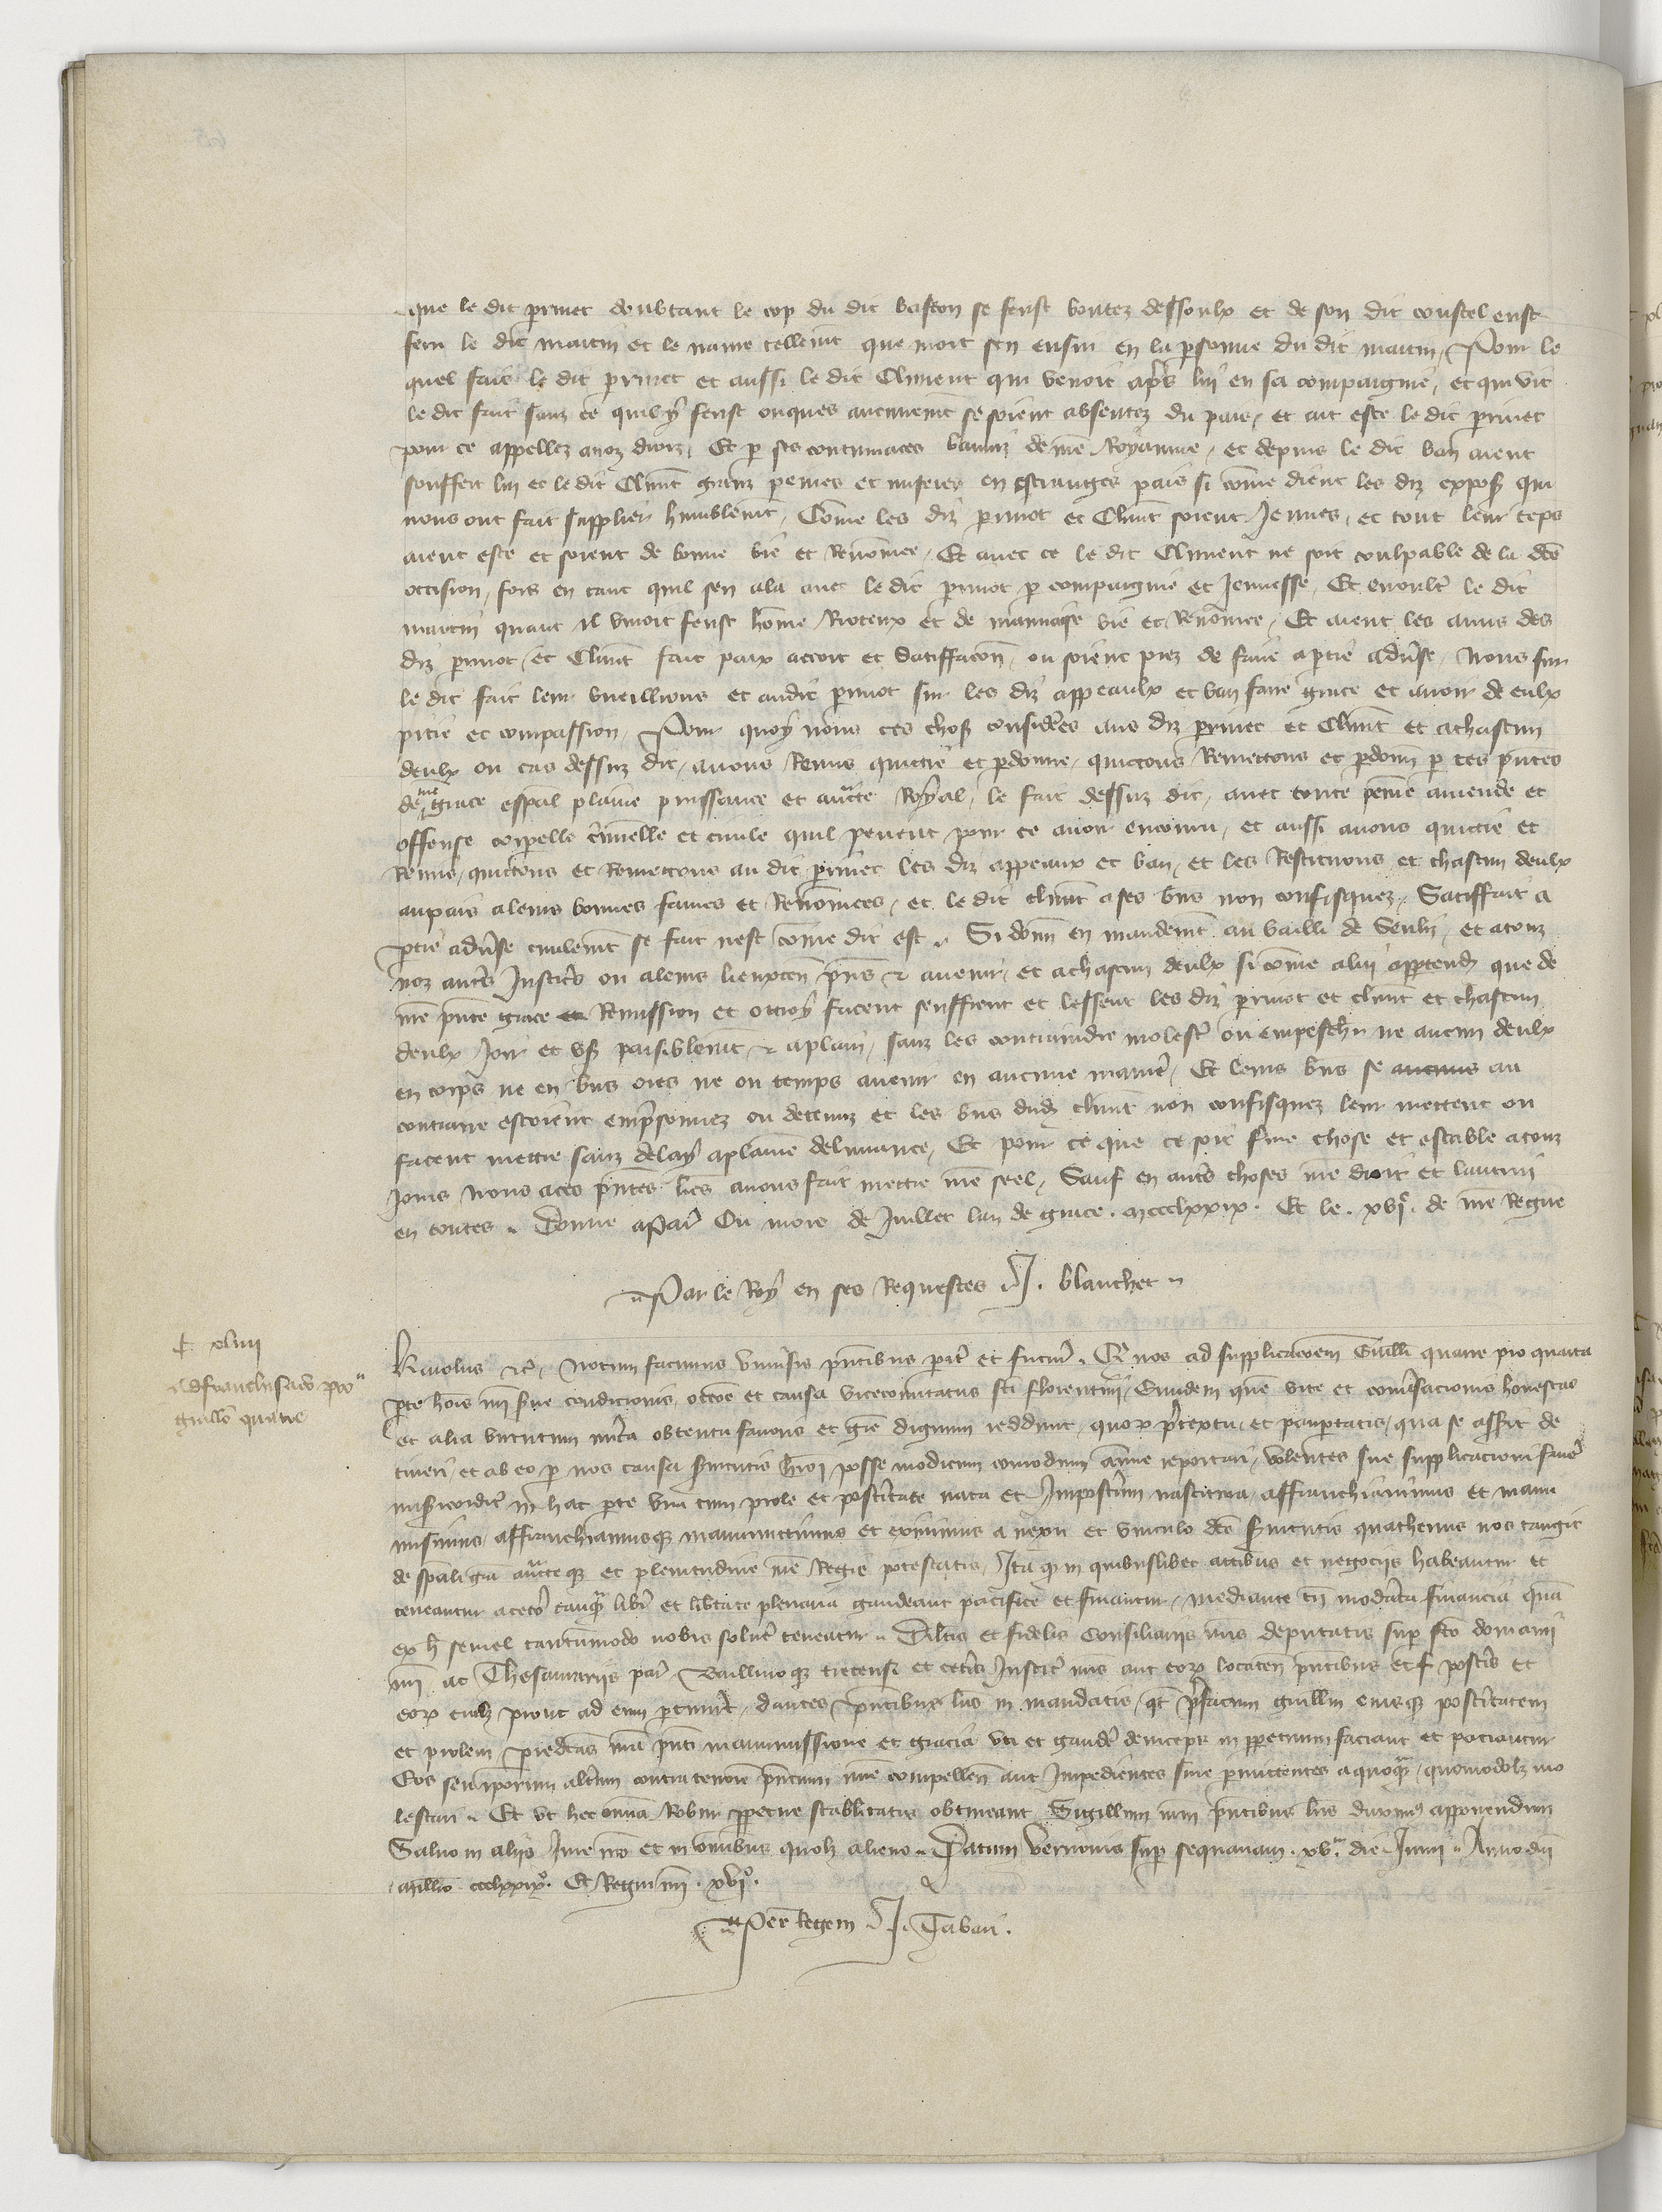 que le dit perinet doubtant le cop du dit baston se feust boutez dessoulx et de son dit coustel eust
feru le dit martin et le navre tellemt que mort sen ensui en la psonne du dit martin, Pour le
quel fait le dit perinet et aussi le dit Climent qui venoit apres lui en sa compaignie, et qui vit
le dit fait sanz ce quil y feust onques aucunemt se soient absentez du pais, et ait este le dit perinet
pour ce appellez a noz droiz, Et p ses contumaces banniz de nre Royaume, et depuis le dit ban aient
souffert lui et le dit Climt granz peines et miseres en estranges pais si come dient les diz expos qui
nous ont fait supplier humblemt, Come les diz perinot et Climt soient Jeunes, et tout leur teps
aient este et soient de bonne vie et Renomee, Et avec ce le dit Climent ne soit coulpable de la dce
occision, fors en tant quil sen ala avec le dit perinot p compaignie et Jeunesse, Et en oultre le dit
martin quant il vivoit feust home Rioteux et de mauvaise vie et Renomee, Et aient les amis des
diz perinot et Climt fait paix accort et satiffacon, ou soient prez de faire a ptie adverse, Nous sur
le dit fait leur vueillions et audit perinot sur les diz appeaulx et ban faire grace et avoir de eulx
pitie et compassion, Pour quoy nous ces choses considerees aus diz perinet et Climt et a chascun
deulx ou cas dessuz dit, avons Remis quictie et pdonne, quictons Remettons et pdonns p ces pntes
de nre grace espal plaine puissance et aucte Royal, le fait dessuz dit, avec toute peine amende et
offense corporelle criminelle et civile quil peuent pour ce avoir encouru, et aussi avons quictie et
Remis, quictons et Remettons au dit perinet les diz appeaux et ban, et les Restituons et chascun deulx
au pais a leurs bonnes fames et Renomees, et le dit climt a ses bns non confisquez, Satiffait a
ptie adverse civilemt se fait nest come dit est. Si donns en mandemt au bailli de Senliz, et a touz
noz autres Justicrs ou a leurs lieuxten pns et avenir, et a chascun deulx si come a lui appartendra que de
nre pnte grace et Remission et ottroy facent seuffrent et lessent les diz perinot et climt et chascun
deulx Joir et user paisiblemt et a plain, sanz les contraindre molester ou empescher ne aucun deulx
en corps ne en bns ores ne ou temps avenir en aucune maniere, Et leurs bns se aucuns au
contraire estoient emprisonnez ou detenuz et les bns dudit climt non confisquez leur mettent ou
facent mettre sanz delay a plaine delivrance, Et pour ce que ce soit ferme chose et estable a touz
jours Nous a ces pntes lres avons fait mettre nre seel, Sauf en autres choses nre droit et lautrui
en toutes. Donne a Paris Ou mois de Juillet lan de grace. mccclxxix. Et le. xvie. de nre Regne
Par le Roy en ses Requestes J. blanchet
xliiii
Karolus etc. Notum facimus universis pntibus pariter et futuris. Quod nos ad supplicacoem Guilli quarre pro quarta
Affranchisacio pro
guillo quarre
pte hois nri serve condicionis, occoe et causa vicecomitatus sci florentini, Eundem quem vite et conversacionis honestas
et alia virtutum merita obtentu favoris et gre dignum reddunt, quorum pretextu, et paupertatis, qua se asserit de
tineri, et ab eo p nos causa servitutis hmoi posse modicum comodum anime reportari, volentes sue supplicacioni favere
misericorditer in hac pte una cum prole et posteritate nata et Imposterum nascitura, affranchiavimus et manu
misimus, affranchiamusque manumittimus et eximimus a nexu et vinculo dce servitutis quathenus nos tangit
de speali gra aucteque et plenitudine nre Regie potestatis, Ita quod in quibuslibet actibus et negociis habeantur et
teneantur a cetero tanquam liberi et libertate plenaria gaudeant pacifice et fruantur, mediante tn moderata financia quam
ex hoc semel tantummodo nobis solvere teneatur. Dilectis et fidelis Consiliariis nris deputatis super fco domanii
nri ac Thesaurariis paris Baillivoque trecensi et ceteris Justic nris aut eorum locaten pntibus et posteris et
eorum cuilibet prout ad eum ptinuerit, dantes pntibus lris in mandatis, qt prefatum guillm eiusque posteritatem
et prolem predictas nra pnti manumissione et gracia uti et gaudere deinceps in perpetuum faciant et paciantur
Eos seu ipsorum alterum contra tenorem pntium mine compellen aut Impedientes sive permittentes a quoquam, quomodolibet mo
lestari. Et ut hec omnia Robur perpetue stabilitatis obtineant Sigillum nrm pntibus lris duximus apponendum
Salvo in aliis Jure nro et in omnibus quolibet alieno. Datum Vernonis super sequanam. xva. die Junii. Anno dni
millio ccclxxixo. Et Regni nri. xvio.
Per Regem J. Tabari.